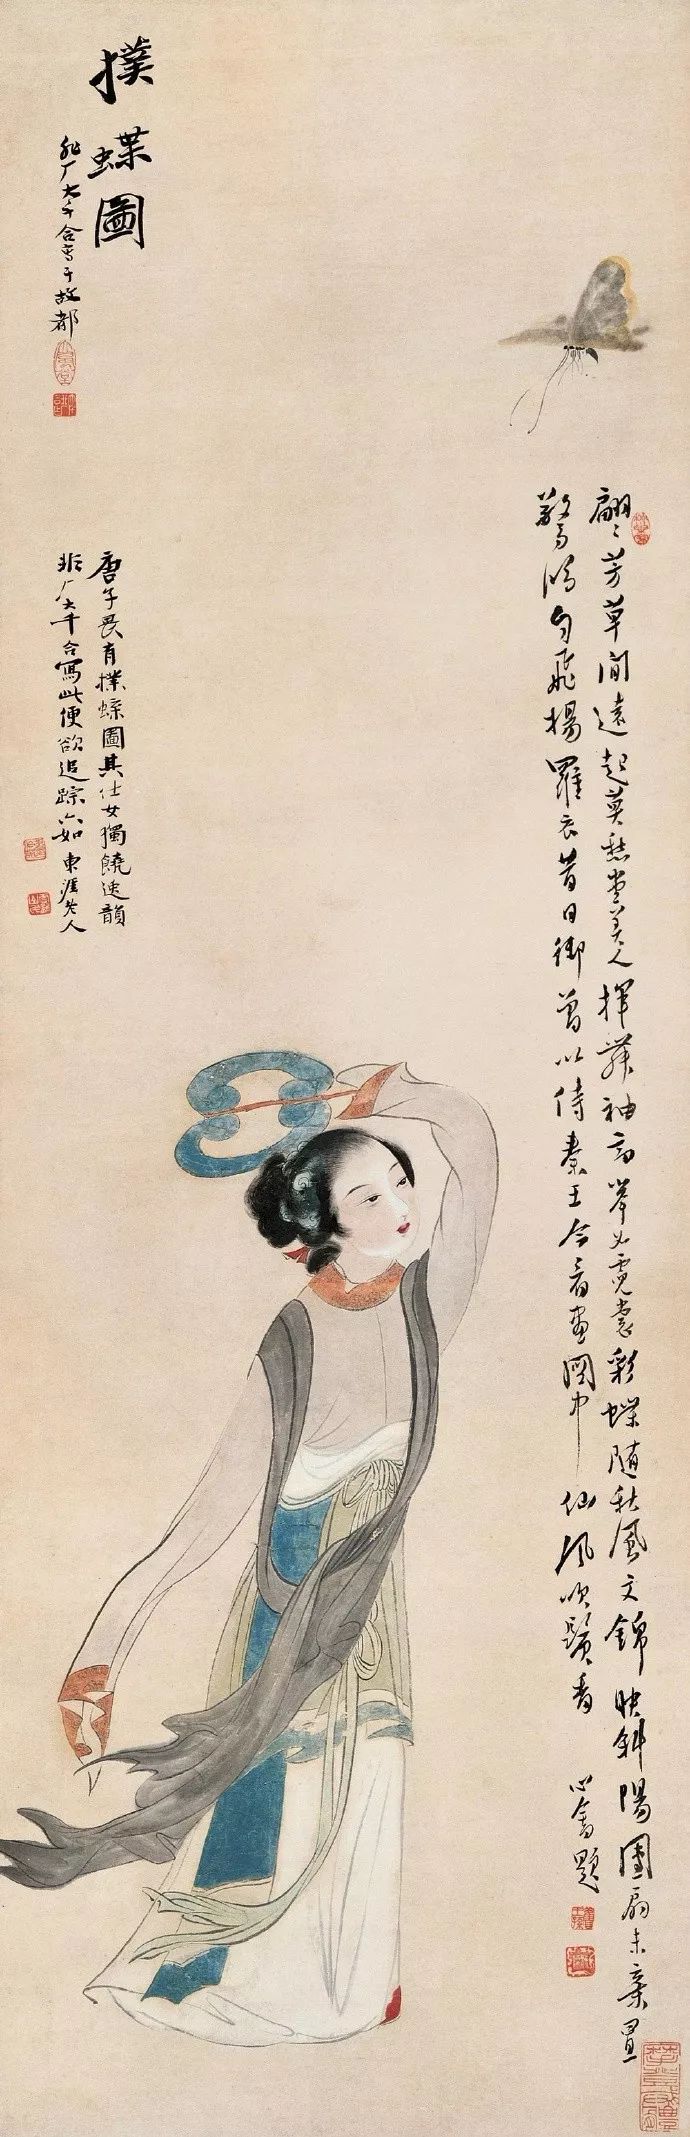 翩〻芳草間遠起莫愁堂美人揮舞袖高舉如霓裳彩蝶隨秋風文錦映斜陽團扇未棄置
驚鴻自飛揚羅衣昔日御曾以侍秦王今看畫圖中仙風吹鬢香
心畬題
撲蝶圖
非厂大千合寫于故都
唐子畏有撲蝶圖其仕女獨饒逸韻
非厂大千合寫此便欲追踪六如 東涯老人